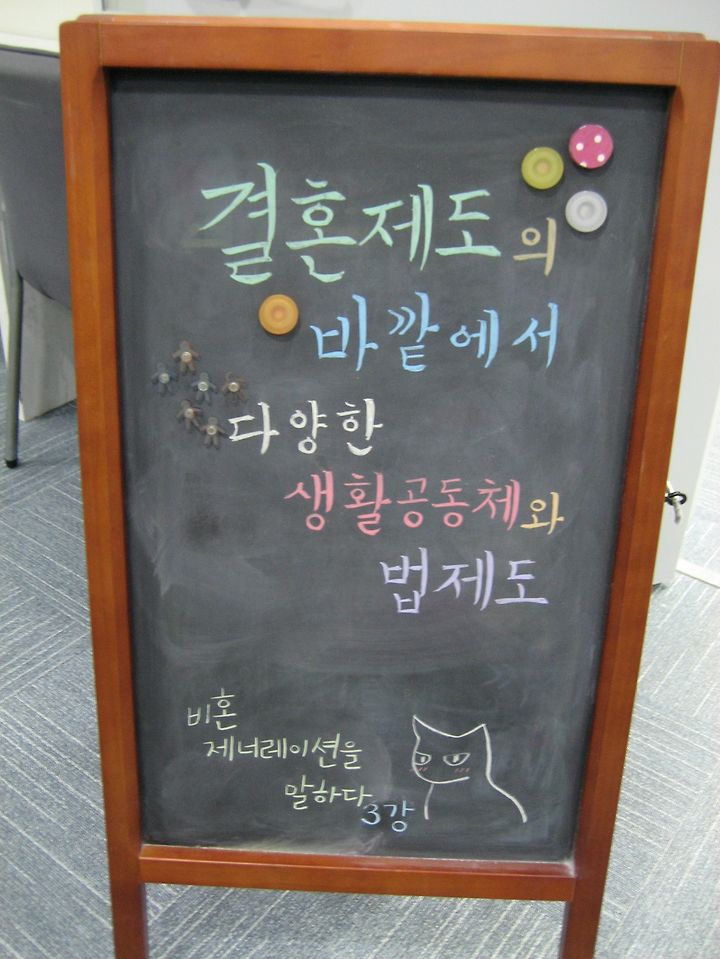 결혼제도의
바깥에서
다양한
생활공동체와
법제도
비혼
제너레이션을
말하다
3강